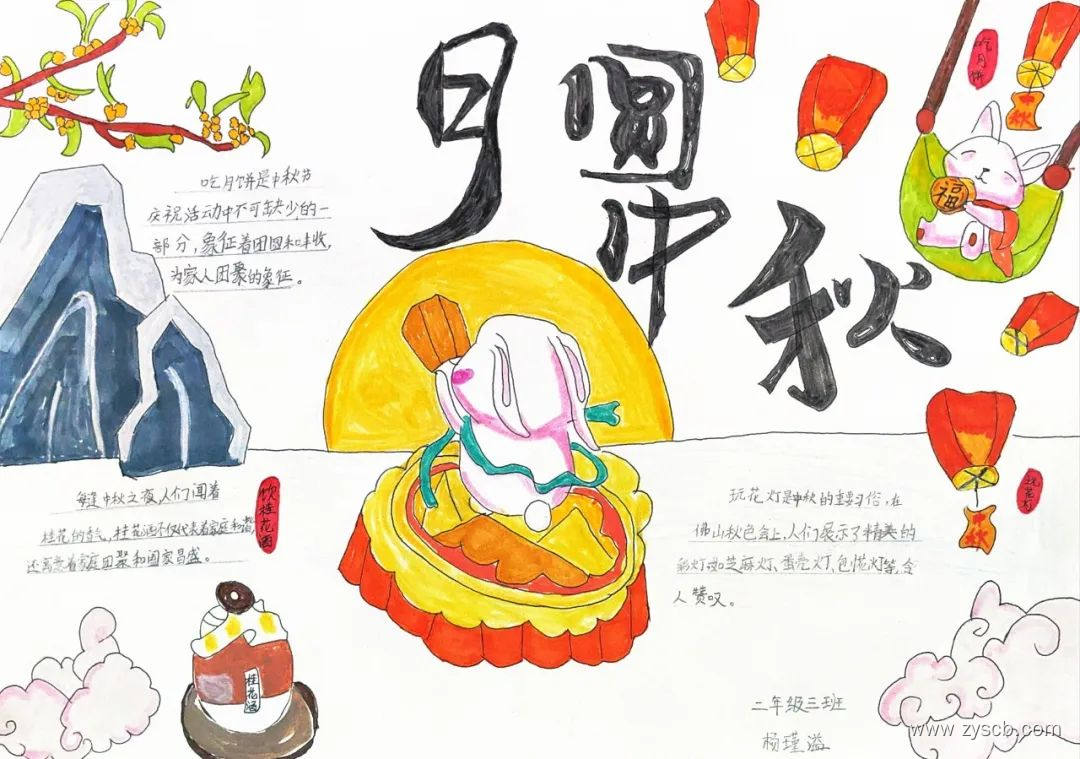 月圆中秋
吃月饼
中秋
福
吃月饼是中秋节
庆祝活动中不可缺少的一
部分，象征着团圆和丰收，
为家人团聚的象征。
每逢中秋之夜，人们闻着
桂花的香气，桂花酒不仅代表着家庭和谐，
还寓意着家庭团聚和阖家昌盛。
饮桂花酒
桂花酒
玩花灯
中秋
玩花灯是中秋的重要习俗，在
佛山秋色会上，人们展示了精美的
彩灯如芝麻灯、蛋壳灯、刨花灯等，令
人赞叹。
二年级三班
杨瑾溢
www.zyscb.com